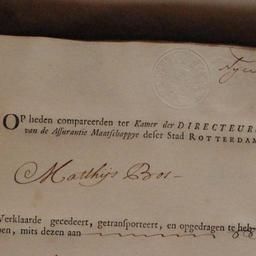 OP heden compareerden ter Kamer der DIRECTEUR
van de Assurantie Maatschappye deser Stad ROTTERDAM
Matthijs Bos
Verklaarde gecedeert, getransporteert, en opgedragen te heb
pen, mits dezen aan